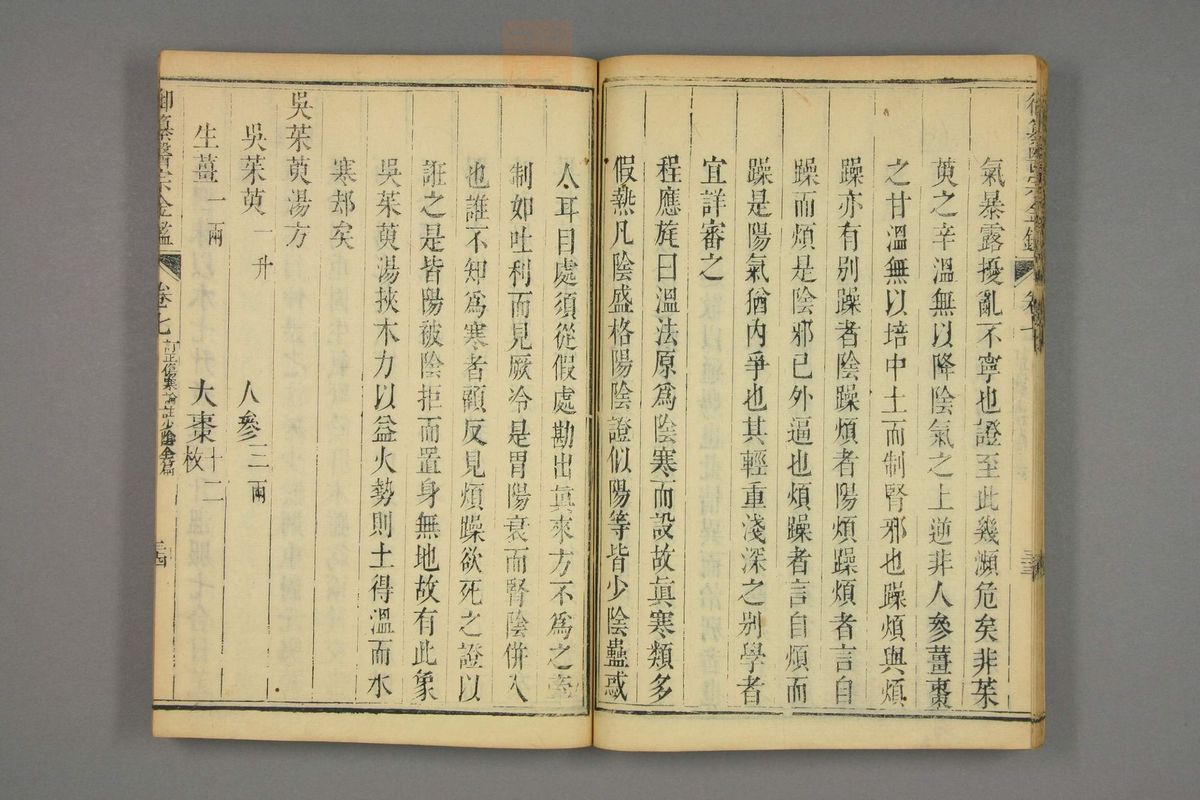 氣暴露擾亂不寧也證至此幾瀕危矣非茱
萸之辛溫無以降陰氣之上逆非人參薑棗
之甘溫無以培中土而制腎邪也躁煩與煩
躁亦有别躁者陰躁煩者陽煩躁煩者言自
躁而煩是陰邪已外逼也煩躁者言自煩而
躁是陽氣猶内爭也其輕重淺深之别學者
宜詳審之
程應旄曰溫法原爲陰寒而設故眞寒類多
假熱凡陰盛格陽陰證似陽等皆少陰蠱惑
人耳目處須從假處勘出眞來方不爲之牽
制如吐利而見厥冷是胃陽衰而腎陰併入
也誰不知爲寒者顧反見煩躁欲死之證以
誑之是皆陽被陰拒而置身無地故有此象
吳茱萸湯挾木力以益火勢則土得溫而水
寒却矣
吳茱萸湯方
吳茱萸一升 人參三兩
生薑一兩 大棗十二枚
御纂醫宗金鑑 卷七 訂正傷寒論註少陰全篇 三四